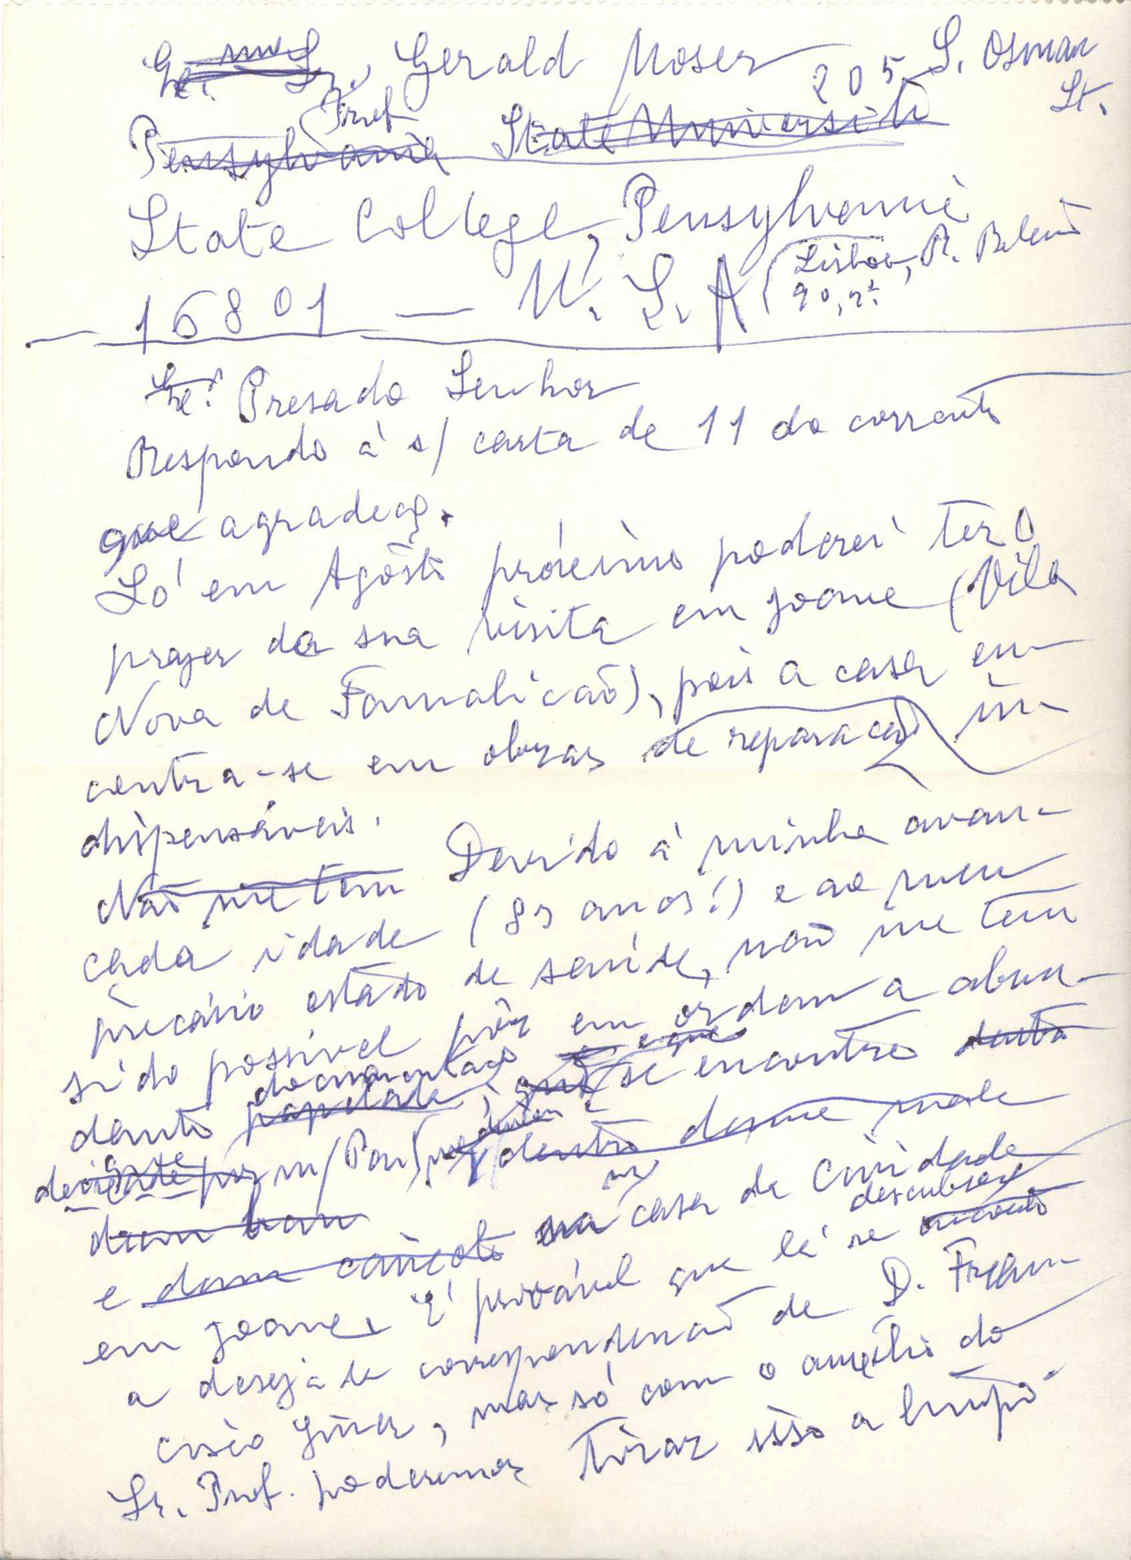 Sr. Gerald Moser 205, S. Osman
St.
(Prof
Pensylvania State Universit
State College, Pensylvani
16801 — U. S. A (Lisboa, R.
90, 2º
Presado Senhor
Respondo á s/ carta de 11 do corrente
que agradeço.
Só em Agôsto próximo poderei ter o
prazer da sua visita em Joane (Vila
Nova de Famalicão), pois a casa en-
contra-se em obras de reparação in-
dispensáveis.
Não me tem Devido á minha avan-
çada idade (89 anos!) e ao meu
precário estado de saúde, não me tem
sido possivel pôr em ordem a abun-
documentação e que
dante papelada, que se encontra
por m/ Pai, dentro
e casa da Cividade
descubra
em Joane. É provável que lá se
a desejada correspondencia de D. Fran-
cisco Giner, mas só com o auxilio do
Sr. Prof. poderemos tirar isso a limpo